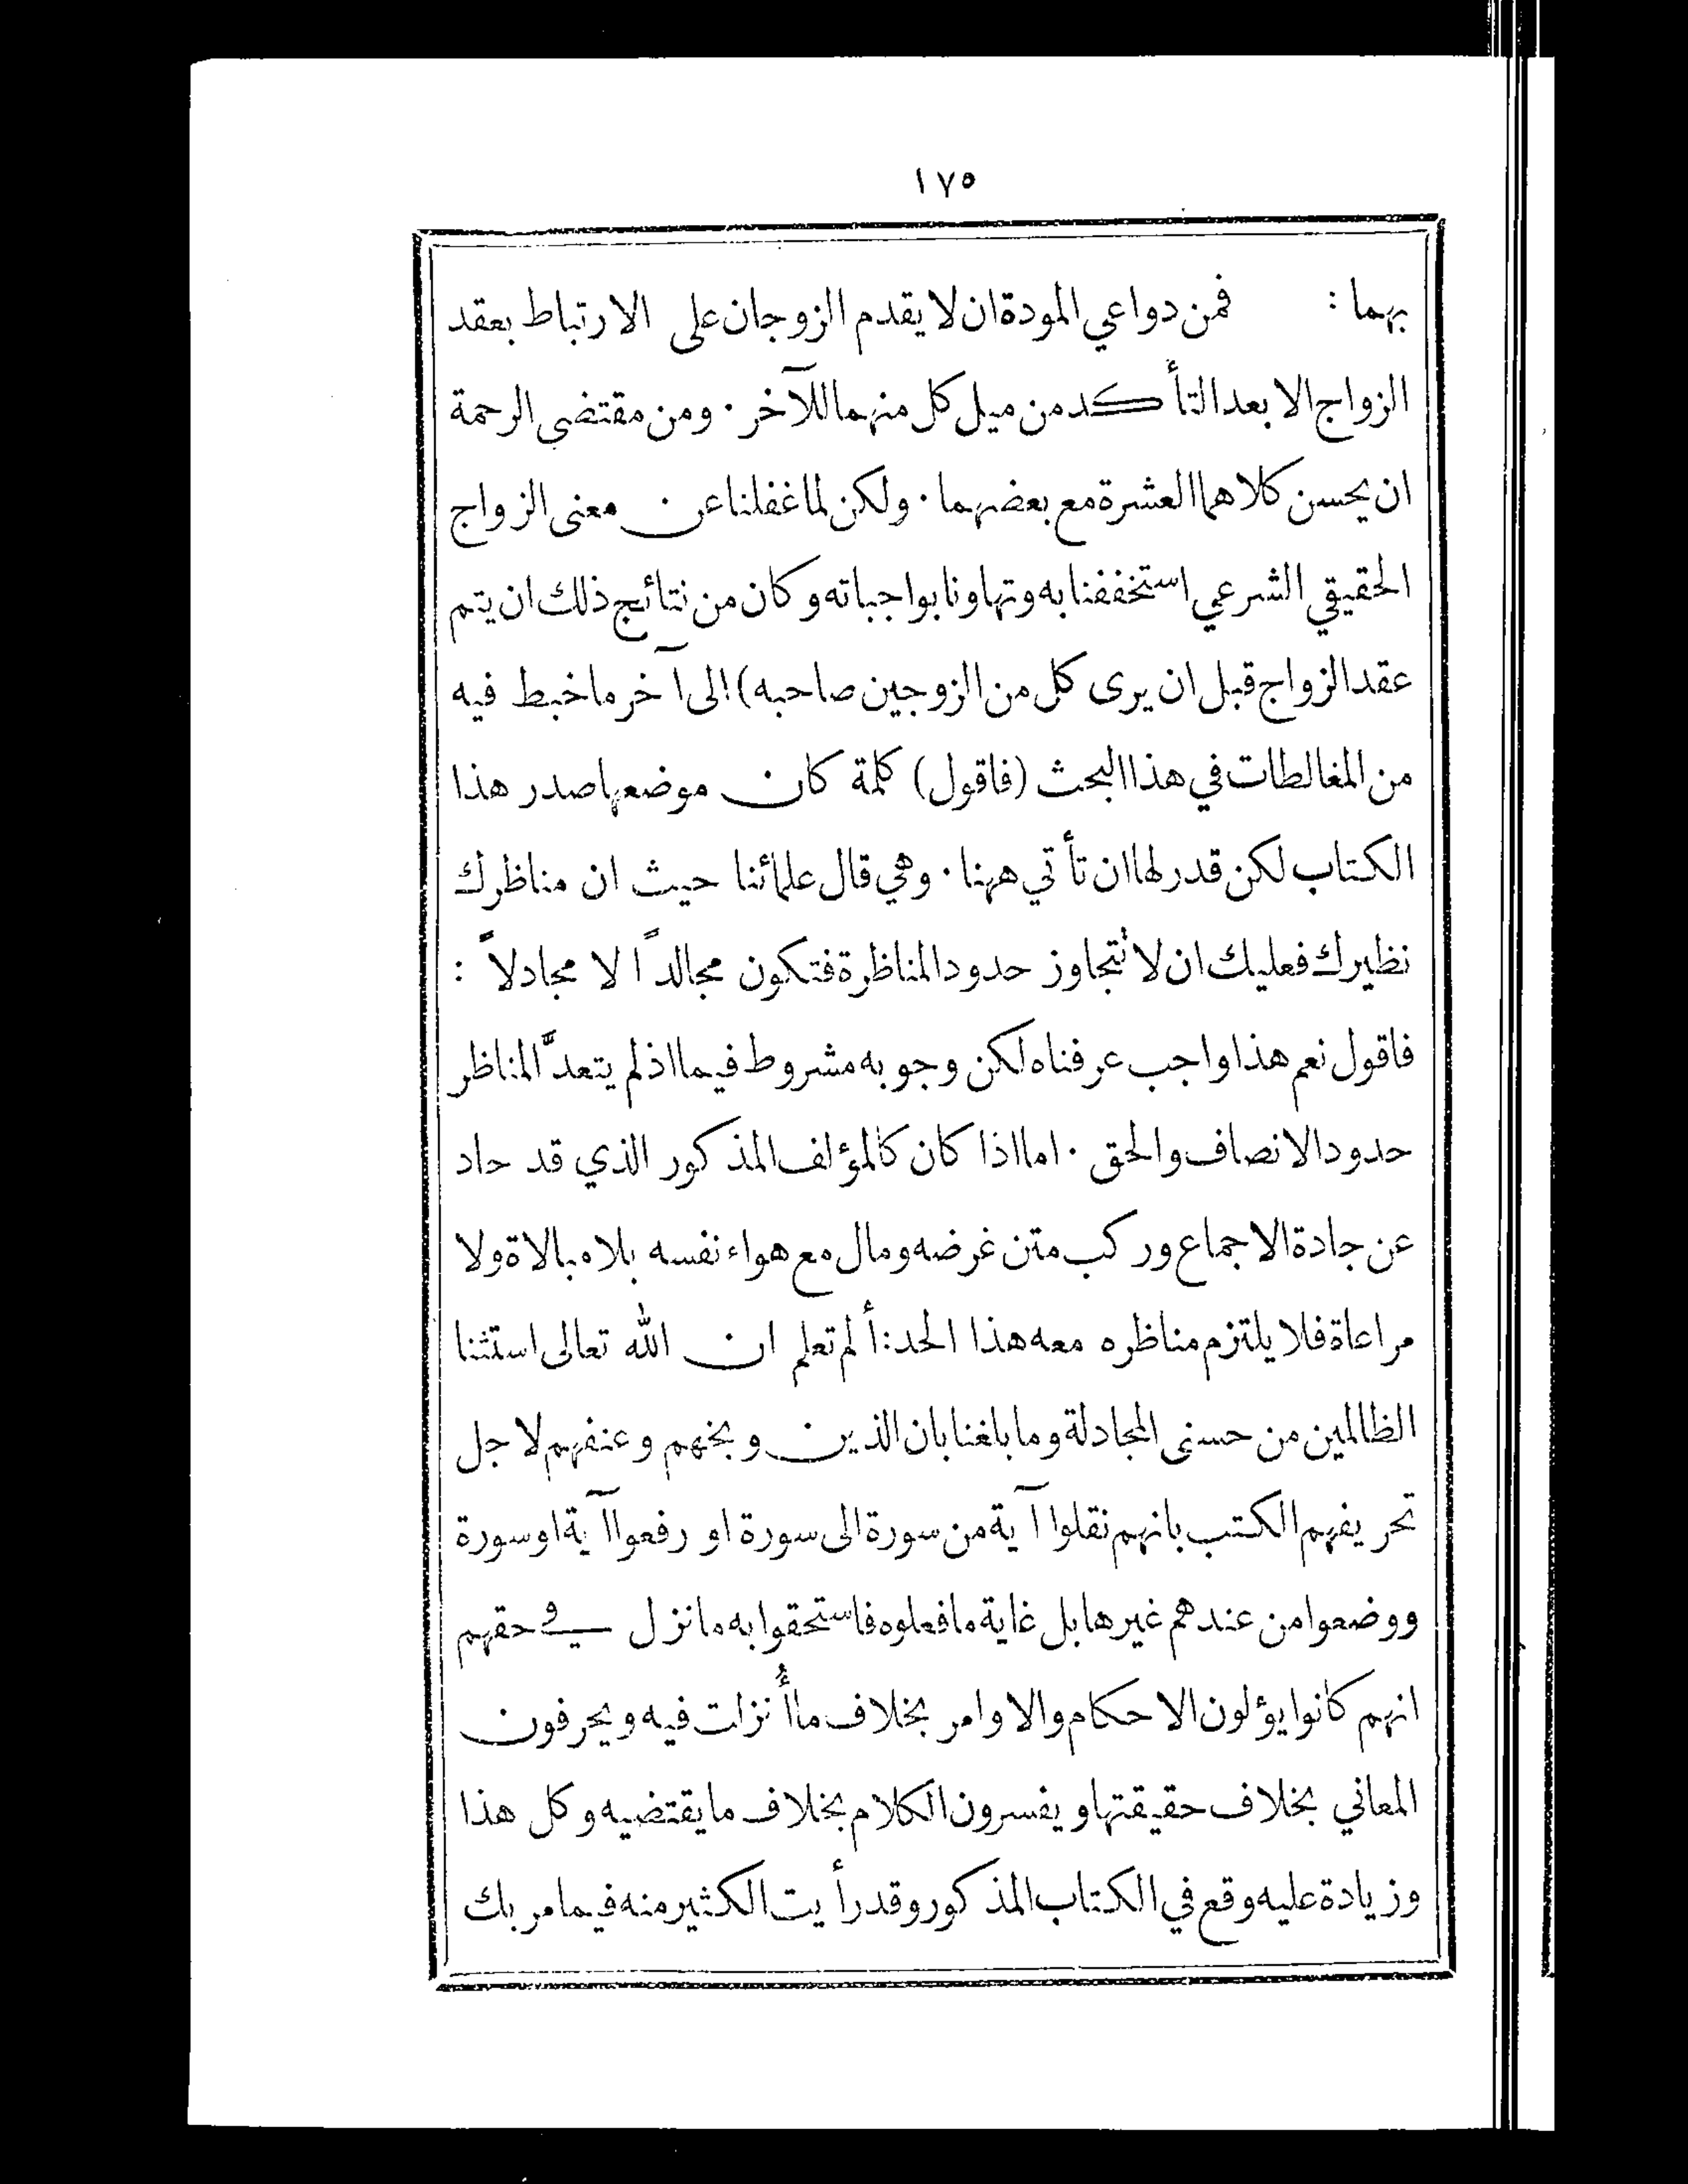 ١٧٥
بهما : فمن دواعي المودة ان لا يقدم الزوجان على الارتباط بعقد
الزواج الا بعد التأكد من ميل كل منهما للآخر . ومن مقتضى الرحمة
ان يحسن كلاهما العشرة مع بعضهما . ولكن لما غفلنا عن معنى الزواج
الحقيقي الشرعي استخففنا به وتهاونا بواجباته وكان من نتائج ذلك ان يتم
عقد الزواج قبل ان يرى كل من الزوجين صاحبه) الى آخر ما خبط فيه
من المغالطات في هذا البحث (فاقول) كلمة كان موضعها صدر هذا
الكتاب لكن قدر لها ان تأتي ههنا . وهي قال علمائنا حيث ان مناظرك
نظيرك فعليك ان لا تتجاوز حدود المناظرة فتكون مجالداً لا مجادلاً :
فاقول نعم هذا واجب عرفناه لكن وجوبه مشروط فيما اذ لم يتعدَّ المناظر
حدود الانصاف والحق . اما اذا كان كالمؤلف المذكور الذي قد حاد
عن جادة الاجماع وركب متن غرضه ومال مع هواء نفسه بلا مبالاة ولا
مراعاة فلا يلتزم مناظره معه هذا الحد : ألم تعلم ان الله تعالى استثنا
الظالمين من حسنى المجادلة وما بلغنا بان الذين وبخهم وعنفهم لاجل
تحريفهم الكتب بانهم نقلوا آية من سورة الى سورة او رفعوا آية او سورة
ووضعوا من عندهم غيرها بل غاية ما فعلوه فاستحقوا به ما نزل في حقهم
انهم كانوا يؤلون الاحكام والاوامر بخلاف ما أُنزلت فيه ويحرفون
المعاني بخلاف حقيقتها ويفسرون الكلام بخلاف ما يقتضيه وكل هذا
وزيادة عليه وقع في الكتاب المذكور وقد رأيت الكثير منه فيما مر بك